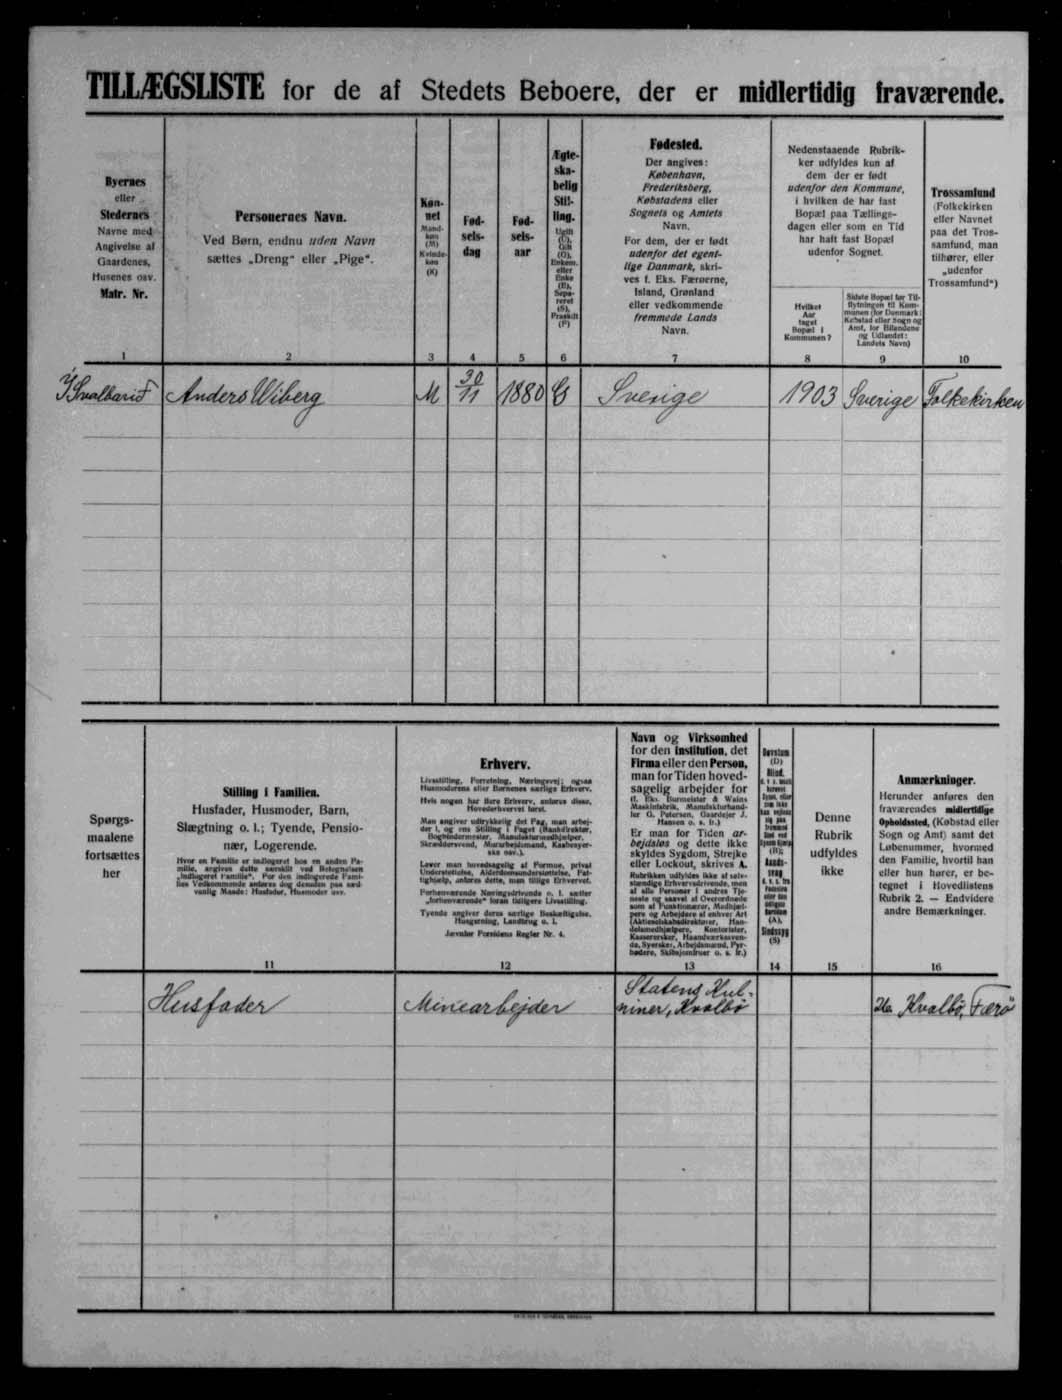 TILLÆGSLISTE for de af Stedets Beboere, der er midlertidig fraværende.
Byernes
eller
Stedernes
Navne med
Angivelse af
Gaardenes,
Husenes osv.
Matr. Nr.
1
Personernes Navn.
Ved Børn, endnu uden Navn
sættes „Dreng“ eller „Pige“.
2
Køn-
net
Mand-
køn
(M)
Kvinde-
køn
(K)
3
Fød-
sels-
dag
4
Fød-
sels-
aar
5
Ægte-
ska-
belig
Stil-
ling.
Ugift
(U),
Gift
(G),
Enkem.
eller
Enke
(E),
Sepa-
reret
(S),
Fraskilt
(F)
6
Fødested.
Der angives:
København,
Frederiksberg,
Købstadens eller
Sognets og Amtets
Navn.
For dem, der er født
udenfor det egent-
lige Danmark, skri-
ves f. Eks. Færøerne,
Island, Grønland
eller vedkommende
fremmede Lands
Navn.
7
Nedenstaaende Rubrik-
ker udfyldes kun af
dem der er født
udenfor den Kommune,
i hvilken de har fast
Bopæl paa Tællings-
dagen eller som en Tid
har haft fast Bopæl
udenfor Sognet.
Hvilket
Aar
taget
Bopæl i
Kommunen?
8
Sidste Bopæl før Til-
flytningen til Kom-
munen (for Danmark:
Købstad eller Sogn og
Amt, for Bilandene
og Udlandet:
Landets Navn)
9
Trossamfund
(Folkekirken
eller Navnet
paa det Tros-
samfund, man
tilhører, eller
„udenfor
Trossamfund“)
10
Í Svalbarið Anders Wiberg M 30/11 1880 G Sverige 1903 Sverige Folkekirken
Spørgs-
maalene
fortsættes
her
Stilling i Familien.
Husfader, Husmoder, Barn,
Slægtning o. l.; Tyende, Pensio-
nær, Logerende.
Hvor en Familie er indlogeret hos en anden Fa-
milie, angives dette særskilt ved Betegnelsen
„indlogeret Familie“. For den indlogerede Fami-
lies Vedkommende anføres dog desuden paa sæd-
vanlig Maade: Husfader, Husmoder osv.
11
Erhverv.
Livsstilling, Forretning, Næringsvej; ogsaa
Husmoderens eller Børnenes særlige Erhverv.
Hvis nogen har flere Erhverv, anføres disse,
Hovederhvervet først.
Man angiver udtrykkelig det Fag, man arbej-
der i, og ens Stilling i Faget (Bankdirektør,
Bogbindermester, Manufakturmedhjælper,
Skræddersvend, Murarbejdsmand, Kasbesyer-
ske osv.).
Lever man hovedsagelig af Formue, privat
Understøttelse, Alderdomsunderstøttelse, Fat-
tighjælp, anføres dette, man tillige Erhvervet.
Forhenværende Næringsdrivende o. l. sætter
„forhenværende“ foran tidligere Livsstilling.
Tyende angiver deres særlige Beskæftigelse,
Husgerning, Landbrug o. l.
Jævnfør Forsidens Regler Nr. 4.
12
Navn og Virksomhed
for den Institution, det
Firma eller den Person,
man for Tiden hoved-
sagelig arbejder for
(f. Eks. Burmeister & Wains
Maskinfabrik, Manufakturhand-
ler G. Petersen, Gaardejer J.
Hansen o. s. fr.)
Er man for Tiden ar-
bejdsløs og dette ikke
skyldes Sygdom, Strejke
eller Lockout, skrives A.
Rubrikken udfyldes ikke af selv-
stændige Erhvervsdrivende, men
af alle Personer i andres Tje-
neste og saavel af Overordnede
som af Funktionærer, Medhjæl-
pere og Arbejdere af enhver Art
(Aktieselskabsdirektører, Han-
delsmedhjælpere, Kontorister,
Kassererske, Haandværkssven-
de, Syersker, Arbejdsmænd, Fyr-
bødere, Skibsjomfruer o. s. fr.)
13
Døvstum
(D)
Blind,
(B);
Aands-
svag
(A),
Sindssyg
(S)
14
Denne
Rubrik
udfyldes
ikke
15
Anmærkninger.
Herunder anføres den
fraværendes midlertidige
Opholdssted, (Købstad eller
Sogn og Amt) samt det
Løbenummer, hvormed
den Familie, hvortil han
eller hun hører, er be-
tegnet i Hovedlistens
Rubrik 2. — Endvidere
andre Bemærkninger.
16
Husfader Minearbejder Statens Kul-
miner, Kvalbø Kvalbø, Færø